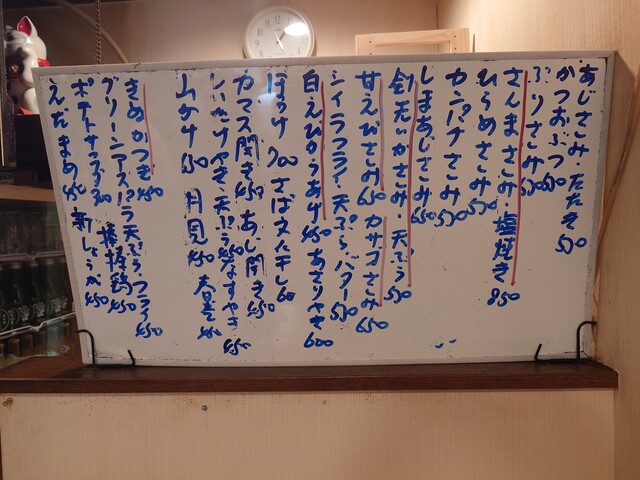 あじさしみ たたき 550
かつおぶつ 550
ぶりさしみ 550
さんまさしみ・塩焼き 850
ひらめさしみ 550
カンパチさしみ 550
しまあじさしみ 650
剣先いかさしみ・天ぷら 550
甘えびさしみ 650 カサゴさしみ 650
シイラフライ・天ぷら・バター 550
白えびからあげ 450 あさりやき 600
ほっけ 700 さば文化干し
カマス開き 450 あじ開き 450
しいたけやき・天ぷら 450 なすやき 450
山かけ 450 月見 450 春巻
きぬかつぎ 450
グリーンアスパラ天ぷら・フライ 450
ポテトサラダ 棒棒鶏 450
えだまめ 450 新しょうが 450